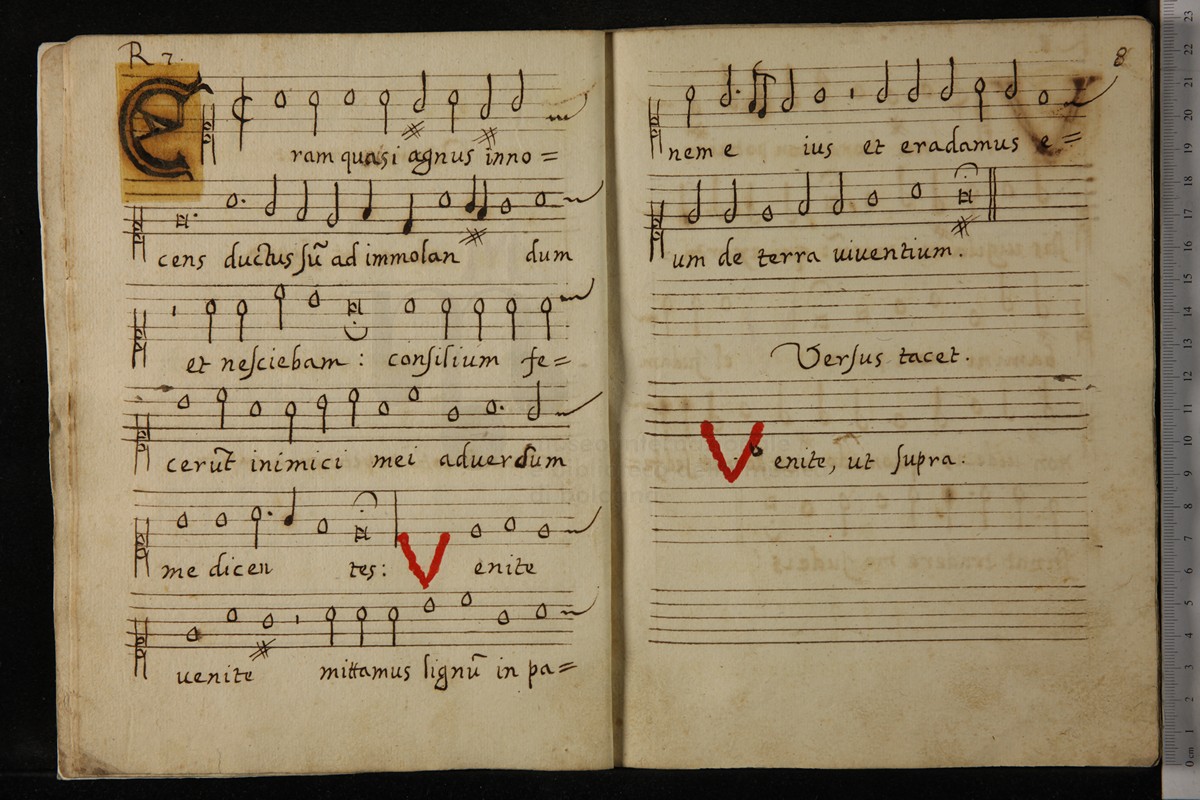 R 7.
E ram quasi agnus inno=
cens ductus sũ ad immolan dum
et nesciebam: consilium fe=
cerũt inimici mei aduersum
me dicen tes: Venite
uenite mittamus lignũ in pa=
8
nem e ius et eradamus e=
um de terra uiuentium.
Versus tacet.
Venite, ut supra.